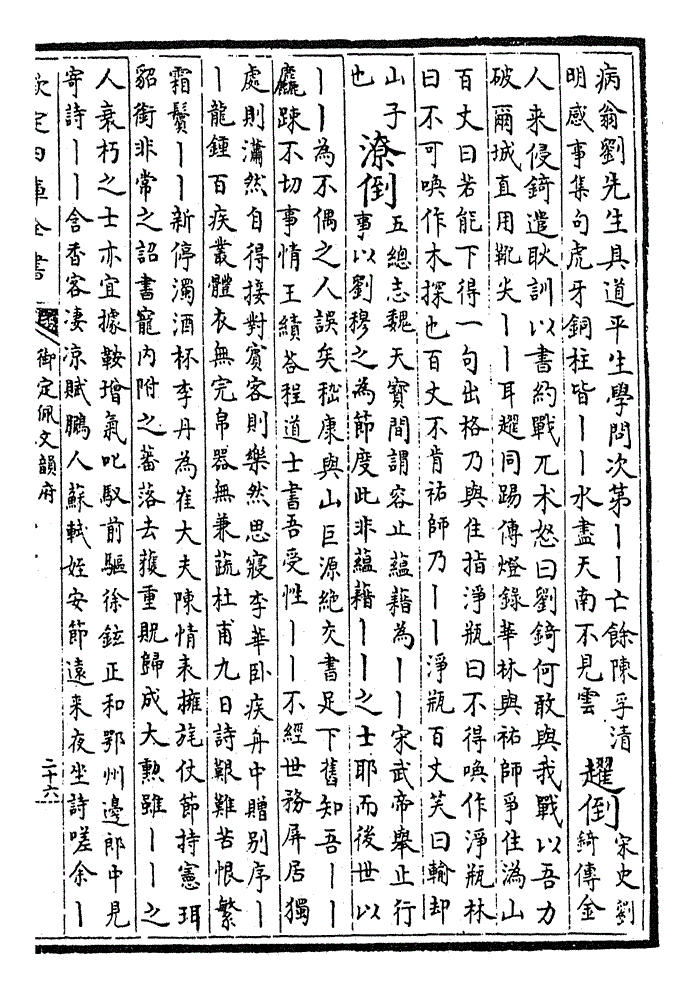 病翁劉先生具道平生學問次第丨丨亡餘陳孚清
明感事集句虎牙銅柱皆丨丨水盡天南不見雲
趯倒
宋史劉
錡傳金
人来侵錡遣耿訓以書約戰兀术怒曰劉錡何敢與我戰以吾力
破爾城直用靴尖丨丨耳趯同踢傳燈錄華林與祐師爭住溈山
百丈曰若能下得一句出格乃與住指淨瓶曰不得喚作淨瓶林
曰不可喚作木探也百丈不肯祐師乃丨丨淨瓶百丈笑曰輸却
山子
也
潦倒
五總志魏天寶間謂容止藴藉為丨丨宋武帝舉止行
事以劉穆之為節度此非藴藉丨丨之士耶而後世以
丨丨為不偶之人誤矣嵇康與山巨源絶交書足下舊知吾丨丨
麤踈不切事情王績答程道士書吾受性丨丨不經世務屏居獨
處則瀟然自得接對賓客則樂然思寢李華卧疾舟中贈别序丨
丨龍鍾百疾叢體衣無完帛器無兼蔬杜甫九日詩艱難苦恨繁
霜鬢丨丨新停濁酒杯李丹為崔大夫陳情表擁旄仗節持憲珥
貂銜非常之詔書寵内附之蕃落去䕶重貺歸成大勲雖丨丨之
人衰朽之士亦宜據鞍增氣叱馭前驅徐鉉正和鄂州邊郎中見
寄詩丨丨含香客凄凉賦鵩人蘇軾姪安節遠来夜坐詩嗟余丨
欽定四庫全書
御定佩文韻府
二十六